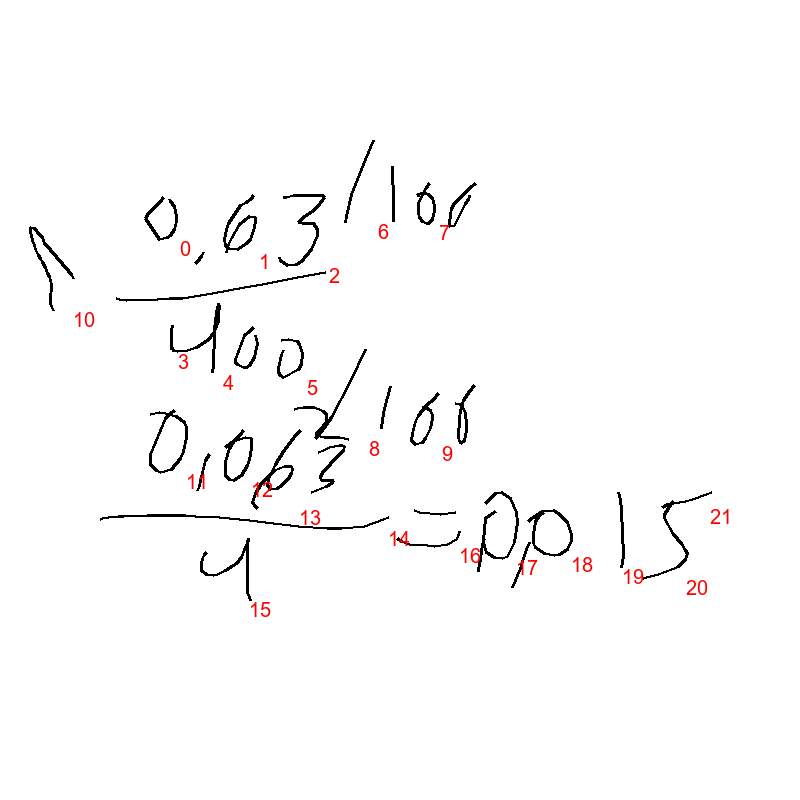 1 0,63/100
400
0,063/100
4 = 0,015
0 1 2 3 4 5 6 7 8 9 10 11 12 13 14 15 16 17 18 19 20 21